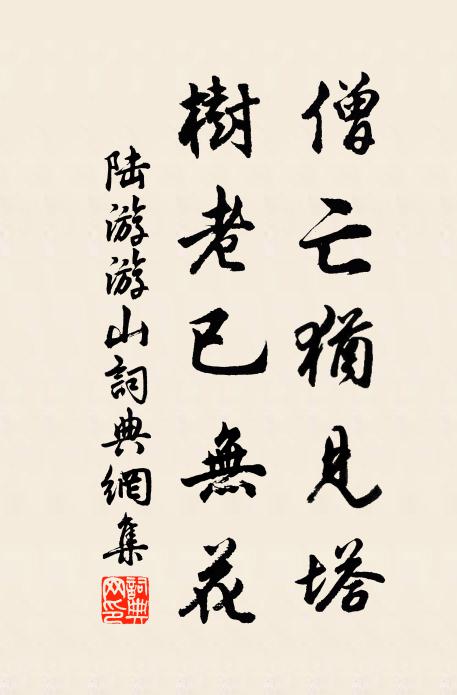 僧亡猶見塔
樹老已無花
陆游游山詞典網集
詞典網印